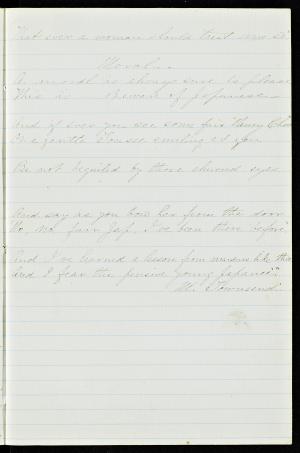 That ever a woman should trust
Moral.
A moral is always sure to please
This is Beware of Japanese
And if ever you see some fair
Or a gentle smiling at you
Be not beguiled by those almond eyes
And say as you bow her from the door
No, no, fair Jap, I've been there before
And I've learned a lesson from
And I fear the pensive young Japanese
M. Townsend.